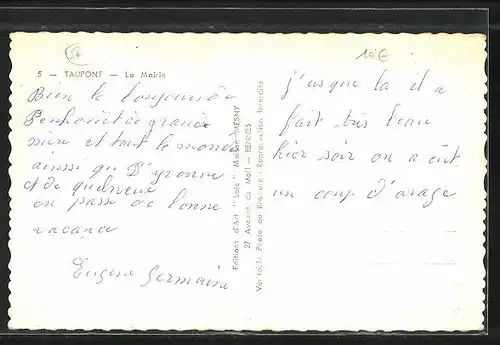 56
10€
5 — TAUPONT — La Mairie
Bien le bonjour de
Penhouet de grand
mère et tout le monde
ainsi qu
et de
on passe de bonne
vacance
Eugene Germaine
Editions d'Art " Loïc " Maison MESNY
27 Avenue du Mail — RENNES
Véritable Photo au Bromure - Reproduction Interdite
j'usque la il a
fait très beau
hier soir on a eut
un coup d'orage